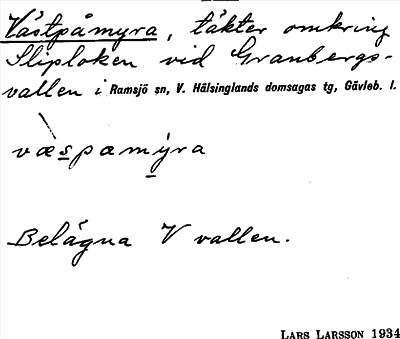 Västpåmyra, täkter omkring
Sliploken vid Granbergs-
vallen i Ramsjö sn, V. Hälsinglands domsagas tg, Gävleb. l.
væspamýra
Belägna V vallen.
LARS LARSSON 1934